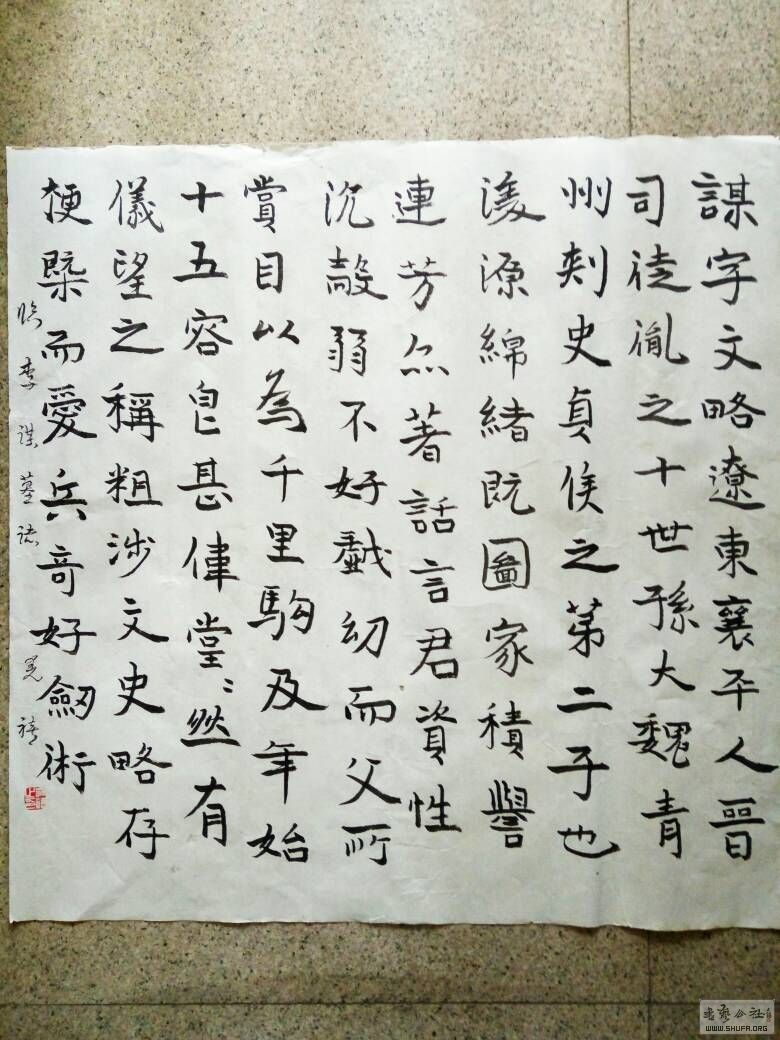 謀字文略遼東襄平人晉
司徒胤之十世孫大魏青
州刺史貞侯之第二子也
濬源綿緒既圖家積譽
連芳尒著話言君資性
沉毅弱不好戲幼而父所
賞目以為千里駒及年始
十五容皃甚偉堂〻然有
儀望之稱粗涉文史略存
梗槩而愛兵奇好劔術
臨李謀墓誌
書藝公社
WWW.SHUFA.ORG